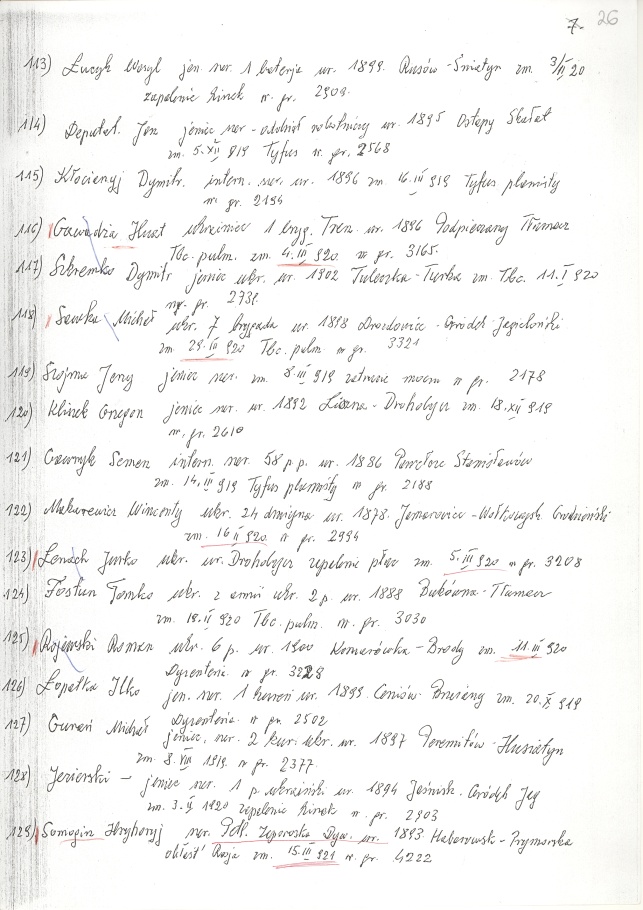 7. 26
113) Łucyk Wasyl jen. ner. 1 baterja ur. 1899 Rusów - Śniatyn zm. 3/III 20
zapalenie kiszek nr gr. 2909
114) Deputat Jan jeniec ner - oddział robotniczy ur. 1895 Ostapy Skałat
zm. 5.XII 919 Tyfus nr gr. 2568
115) Kłocienyj Dymitr. intern. ner. ur. 1896 zm. 16.III 919 Tyfus plamisty
nr gr. 2194
116) Gawadza Hnat ukrainiec 1 bryg. Tren. ur. 1896 Podpieczary Tłumacz
Tbc. pulm. zm. 4.III 920 nr gr. 3165.
117) Szkremko Dymitr jeniec ukr. ur. 1902 - Turka zm. Tbc. 11.I 920
nr gr. 2731
118) Sawka Michał ukr. 7 brygada ur. 1898 Drozdowice - Gródek Jagieloński
zm 29.III 920 Tbc. pulm. nr gr. 3321
119) Szojma Jerzy jeniec ner. zm. 8.III 919 nr gr. 2178
120) Klinek Grzegorz jeniec ner. ur. 1892 Liszna - Drohobycz zm. 18.XII 919
nr. gr. 2610
121) Semen intern. ner. 58 p.p. ur. 1886 Pawełcze Stanisławów
zm. 14.III 919 Tyfus plamisty nr gr. 2188
122) Makarewicz Wincenty ukr. 24 ur. 1878. - Wołkowysk Grodzieński
zm. 16 II 920 nr gr. 2994
123) Jurko ukr. ur. Drohobycz zapalenie płuc zm. 5.III 920 nr gr. 3208
124) Fostun Tomko ukr. z armii ukr. 2 p. ur. 1888 Bukówna - Tłumacz
zm. 18.II 920 Tbc. pulm. nr. gr. 3030
125) Rojewski Roman ukr. 6 p. ur. 1900 Komarówka - Brody zm. 11.III 920
Dyzenteria nr gr. 3228
126) Łopatka Ilko jen. ner. 1 kureń ur. 1899 Ceniów Brzeżany zm. 20.X 919
Dyzenteria nr gr. 2502
127) Gureń Michał jeniec, ner. 2 kur. ukr. ur. 1897 Peremiłów - Husiatyn
zm. 8.VIII 1919 nr gr. 2377
128) Jezierski - jeniec ner. 1 p. ukraiński ur. 1894 Gródek Jag
zm. 3.II 1920 zapalenie kiszek nr gr. 2903
129) Samogin Hryhoryj ner. Zaporoska Dyw. ur. 1893 Habarowsk - Prymorska
obłast' Rosja zm. 15.III 921 nr gr. 4222